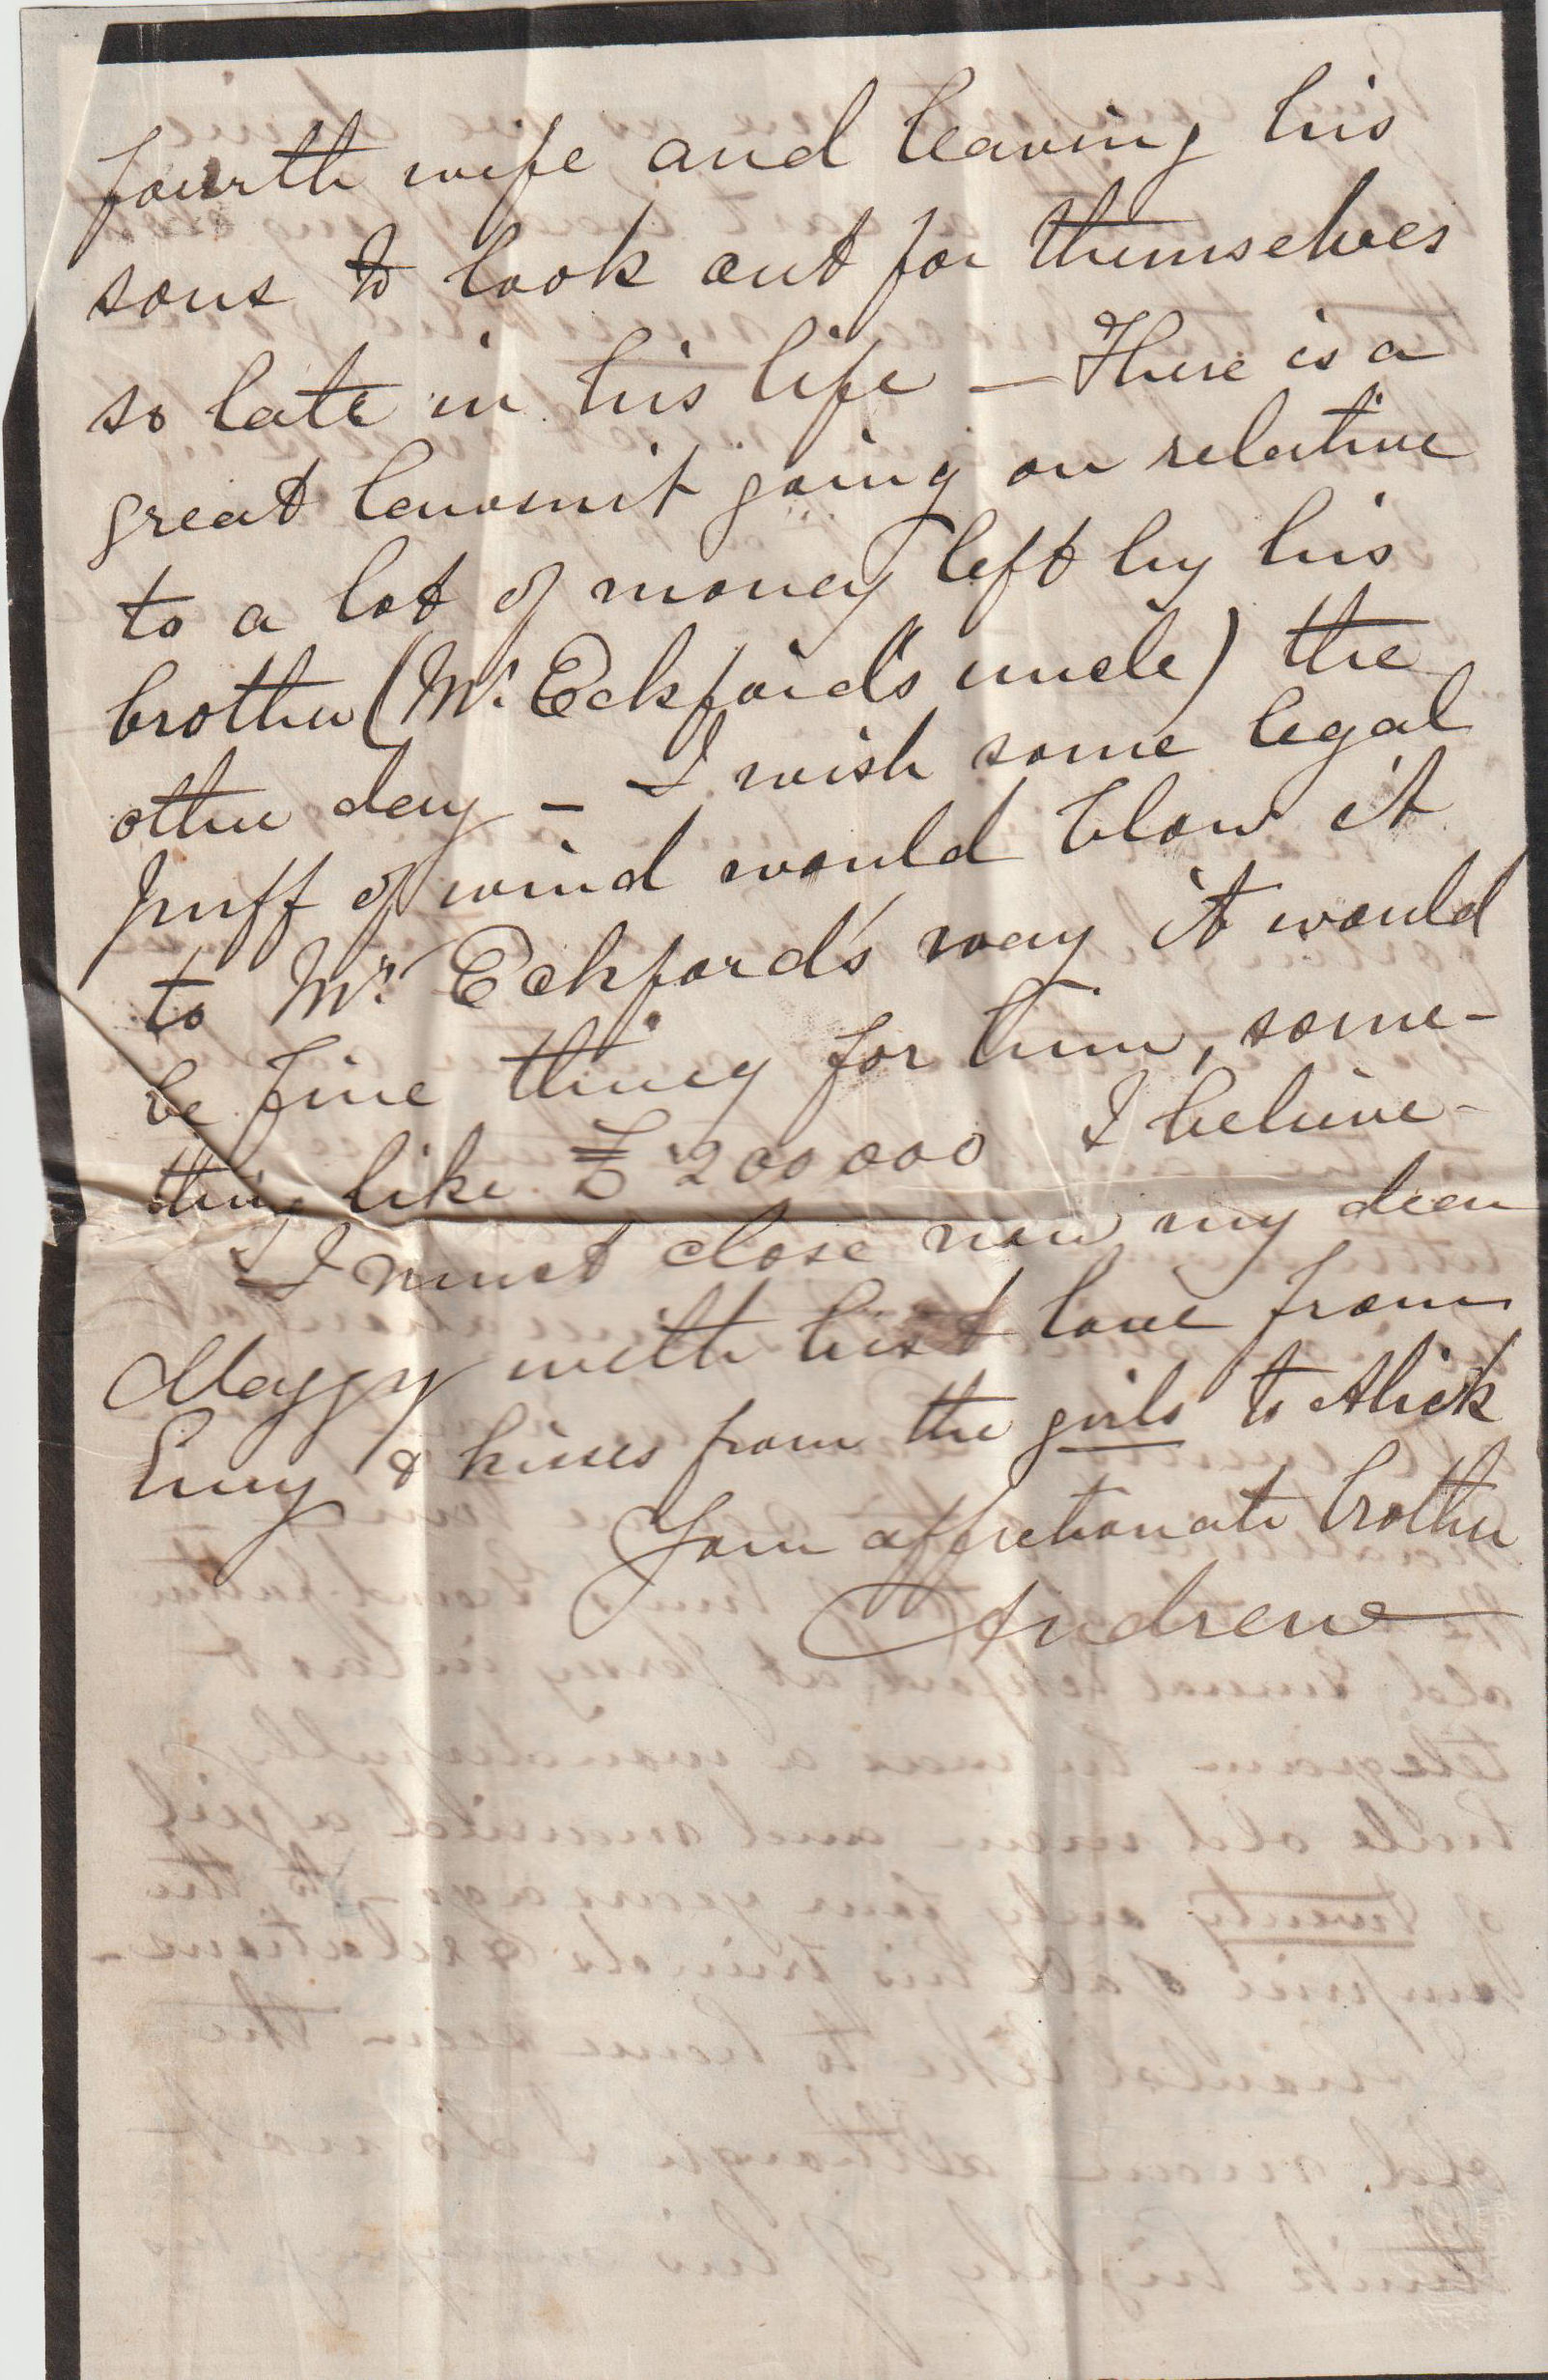 fourth wife and leaving his
sons to look out for themselves
so late in his life – There is a
great lawsuit going on relative
to a lot of money left by his
brother (Mr. Eckford's uncle) the
other day – I wish some legal
puff of wind would blow it
to Mr. Eckford's way it would
be fine thing for him, some-
thing like £200000 I believe –
I must close now my dear
Maggy with best love from
& kisses from the girls to Alick
Your affectionate brother
Andrew